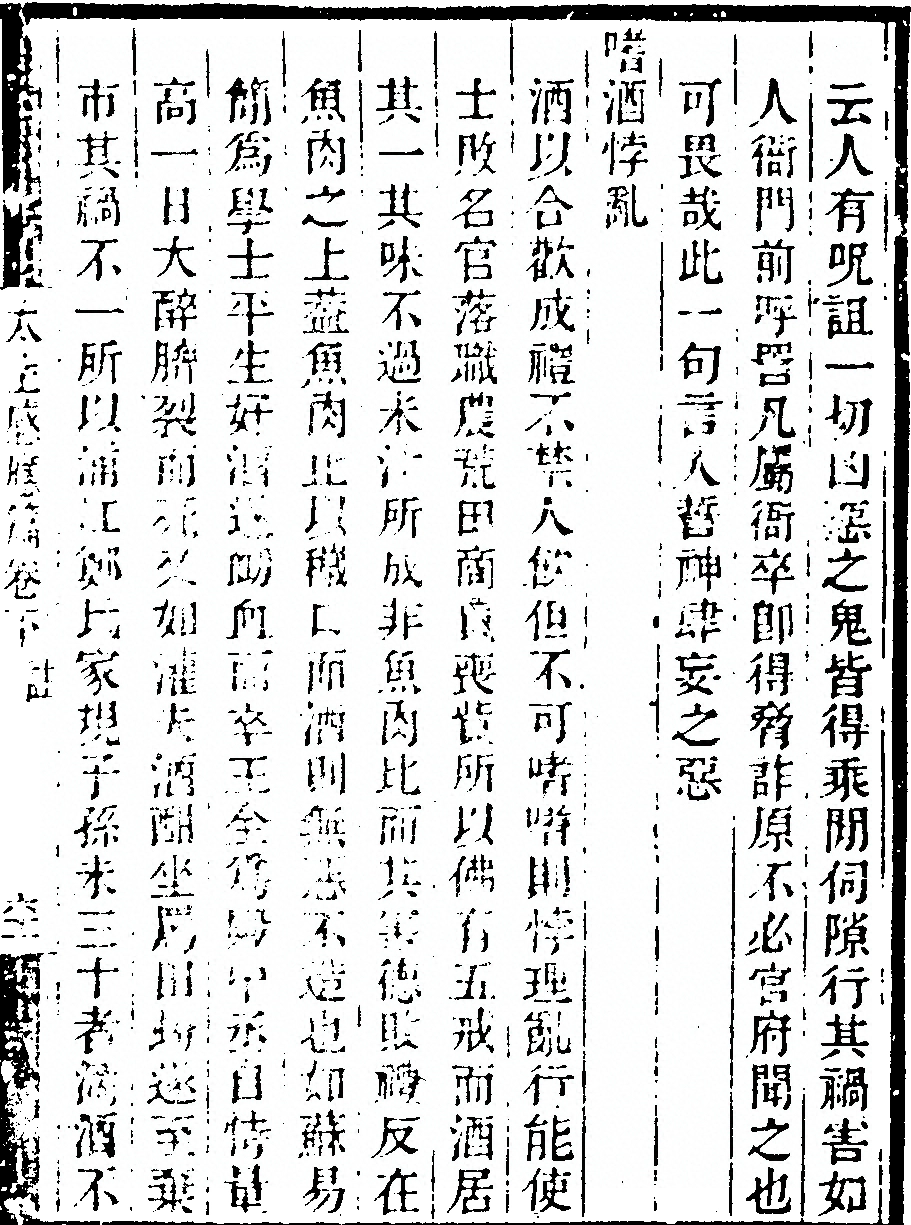 云人有呪詛一切凶惡之鬼皆得乘間伺隙行其禍害如
人衙門前呼詈凡屬衙卒卽得脅詐原不必官府聞之也
可畏哉此一句言人晢神肆妄之惡
嗜酒悖亂
酒以合歡成禮不禁人飲但不可嗜嗜則悖理亂行能使
士敗名官落職農荒田商負喪貲所以佛有五戒而酒居
其一其味不過米汁所成非魚肉比而其害德敗禮反在
魚肉之上葢魚肉止以穢口而酒則無惡不造也如蘇易
簡爲學士平生好酒遂衂血而卒王全爲殿中丞自恃量
高一日大醉臍裂而死又如灌夫酒酣坐罵田蚡遂至棄
市其禍不一所以浦江鄭氏家規子孫未三十者濁酒不
太上感應篇卷下 註